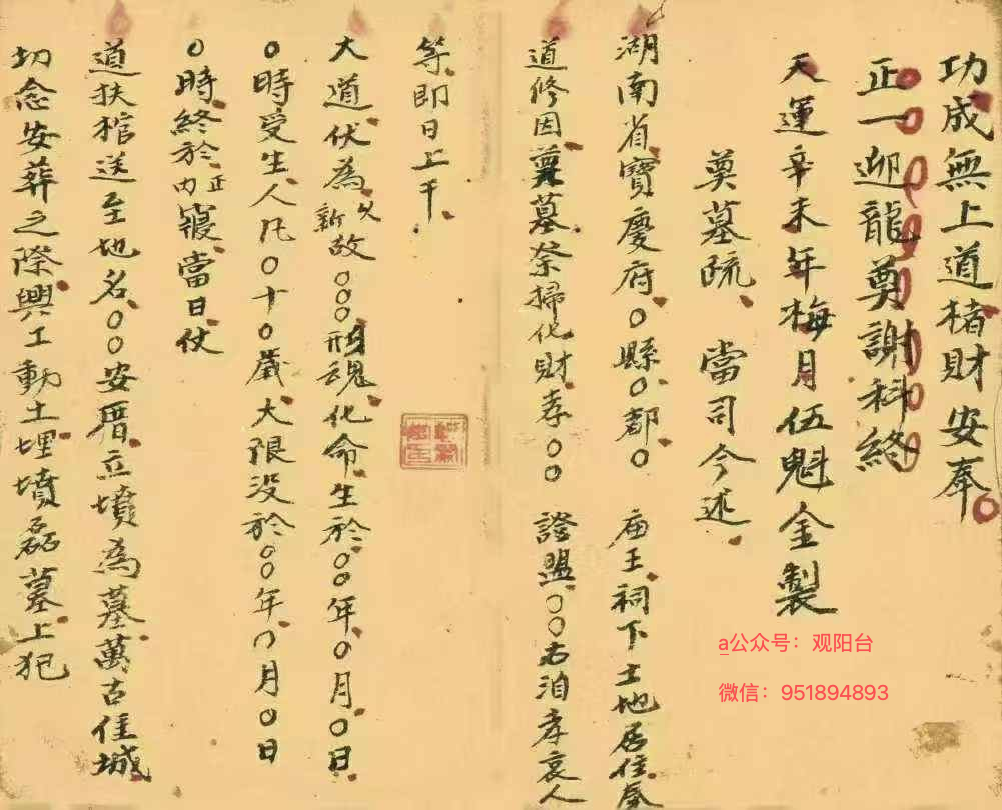 功成無上道楮財安奉
正一迎龍奠謝科終
天運辛未年梅月伍魁金製
奠墓疏、當司今述、
湖南省寶慶府、○縣○都○ 庙王祠下土地居住奉
道修因奠墓祭掃化財孝○○ 證盟、○○右洎孝哀人
等、即日上干、
大道伏為新故父○○○形魂化命生於○○年○月○日
○時受生人凡○十○歲大限没於○○年○月○日
○時終於内正寢當日仗
道扶棺送至地名、○○安厝立墳為墓萬古佳城
切念安葬之際興工動土埋墳磊墓上犯
a公众号：观阳台
微信：951894893